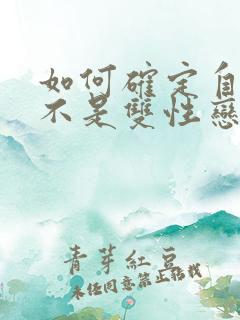 如何確定自
不是雙性戀
青芽紅豆
未經同意禁止轉載